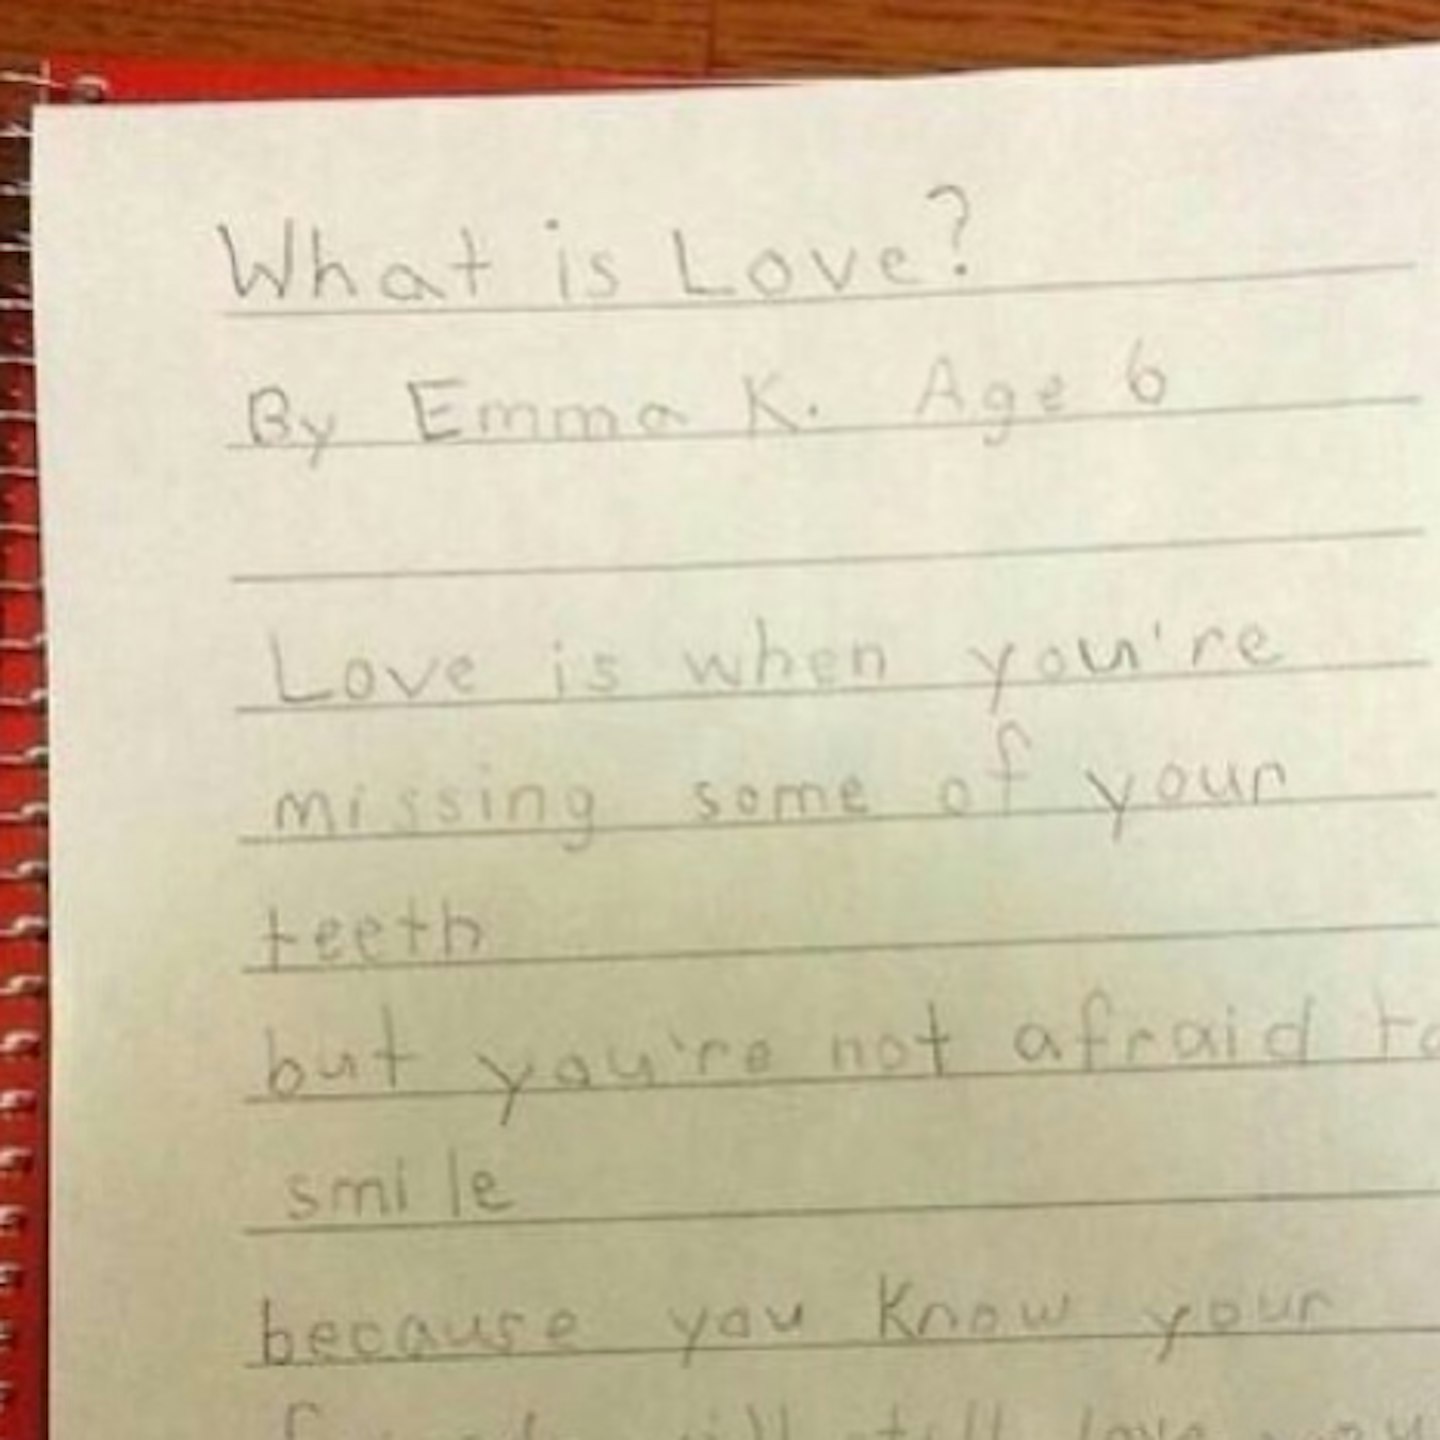 What is Love?
By Emma K. Age 6
Love is when you're
missing some of your
teeth
but you're not afraid to
smile
because you know your
friends will still love you